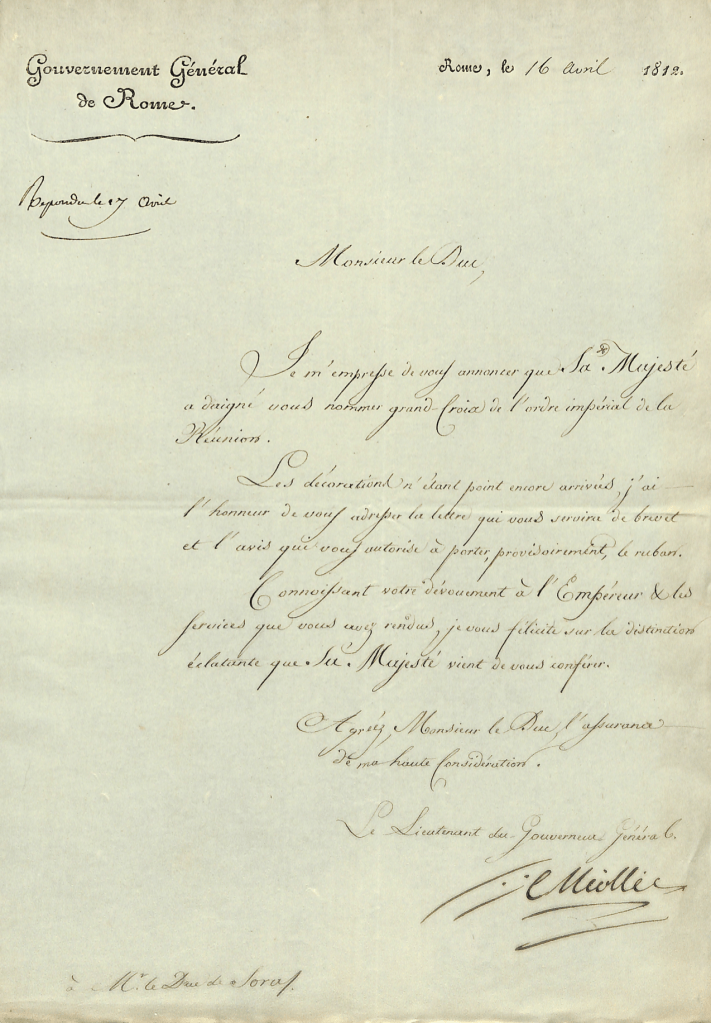 Gouvernement Général
de Rome.
Rome, le 16 avril 1812.
Repondu le 17 avril
Monsieur le Duc,
Je m'empresse de vous annoncer que Sa Majesté
a daigné vous nommer grand-Croix de l'ordre impérial de la
Réunion.
Les décorations n'étant point encore arrivées, j'ai
l'honneur de vous adresser la lettre qui vous servira de brevet
et l'avis que vous autorise à porter, provisoirement, le ruban.
Connoissant votre dévouement à l'Empéreur & les
services que vous avez rendus, je vous félicite sur la distinction
éclatante que Sa Majesté vient de vous conférer.
Agréez, Monsieur le Duc, l'assurance
de ma haute Considération.
Le Lieutenant du Gouverneur Général.
Miollis
à Mr. le Duc de Sora.